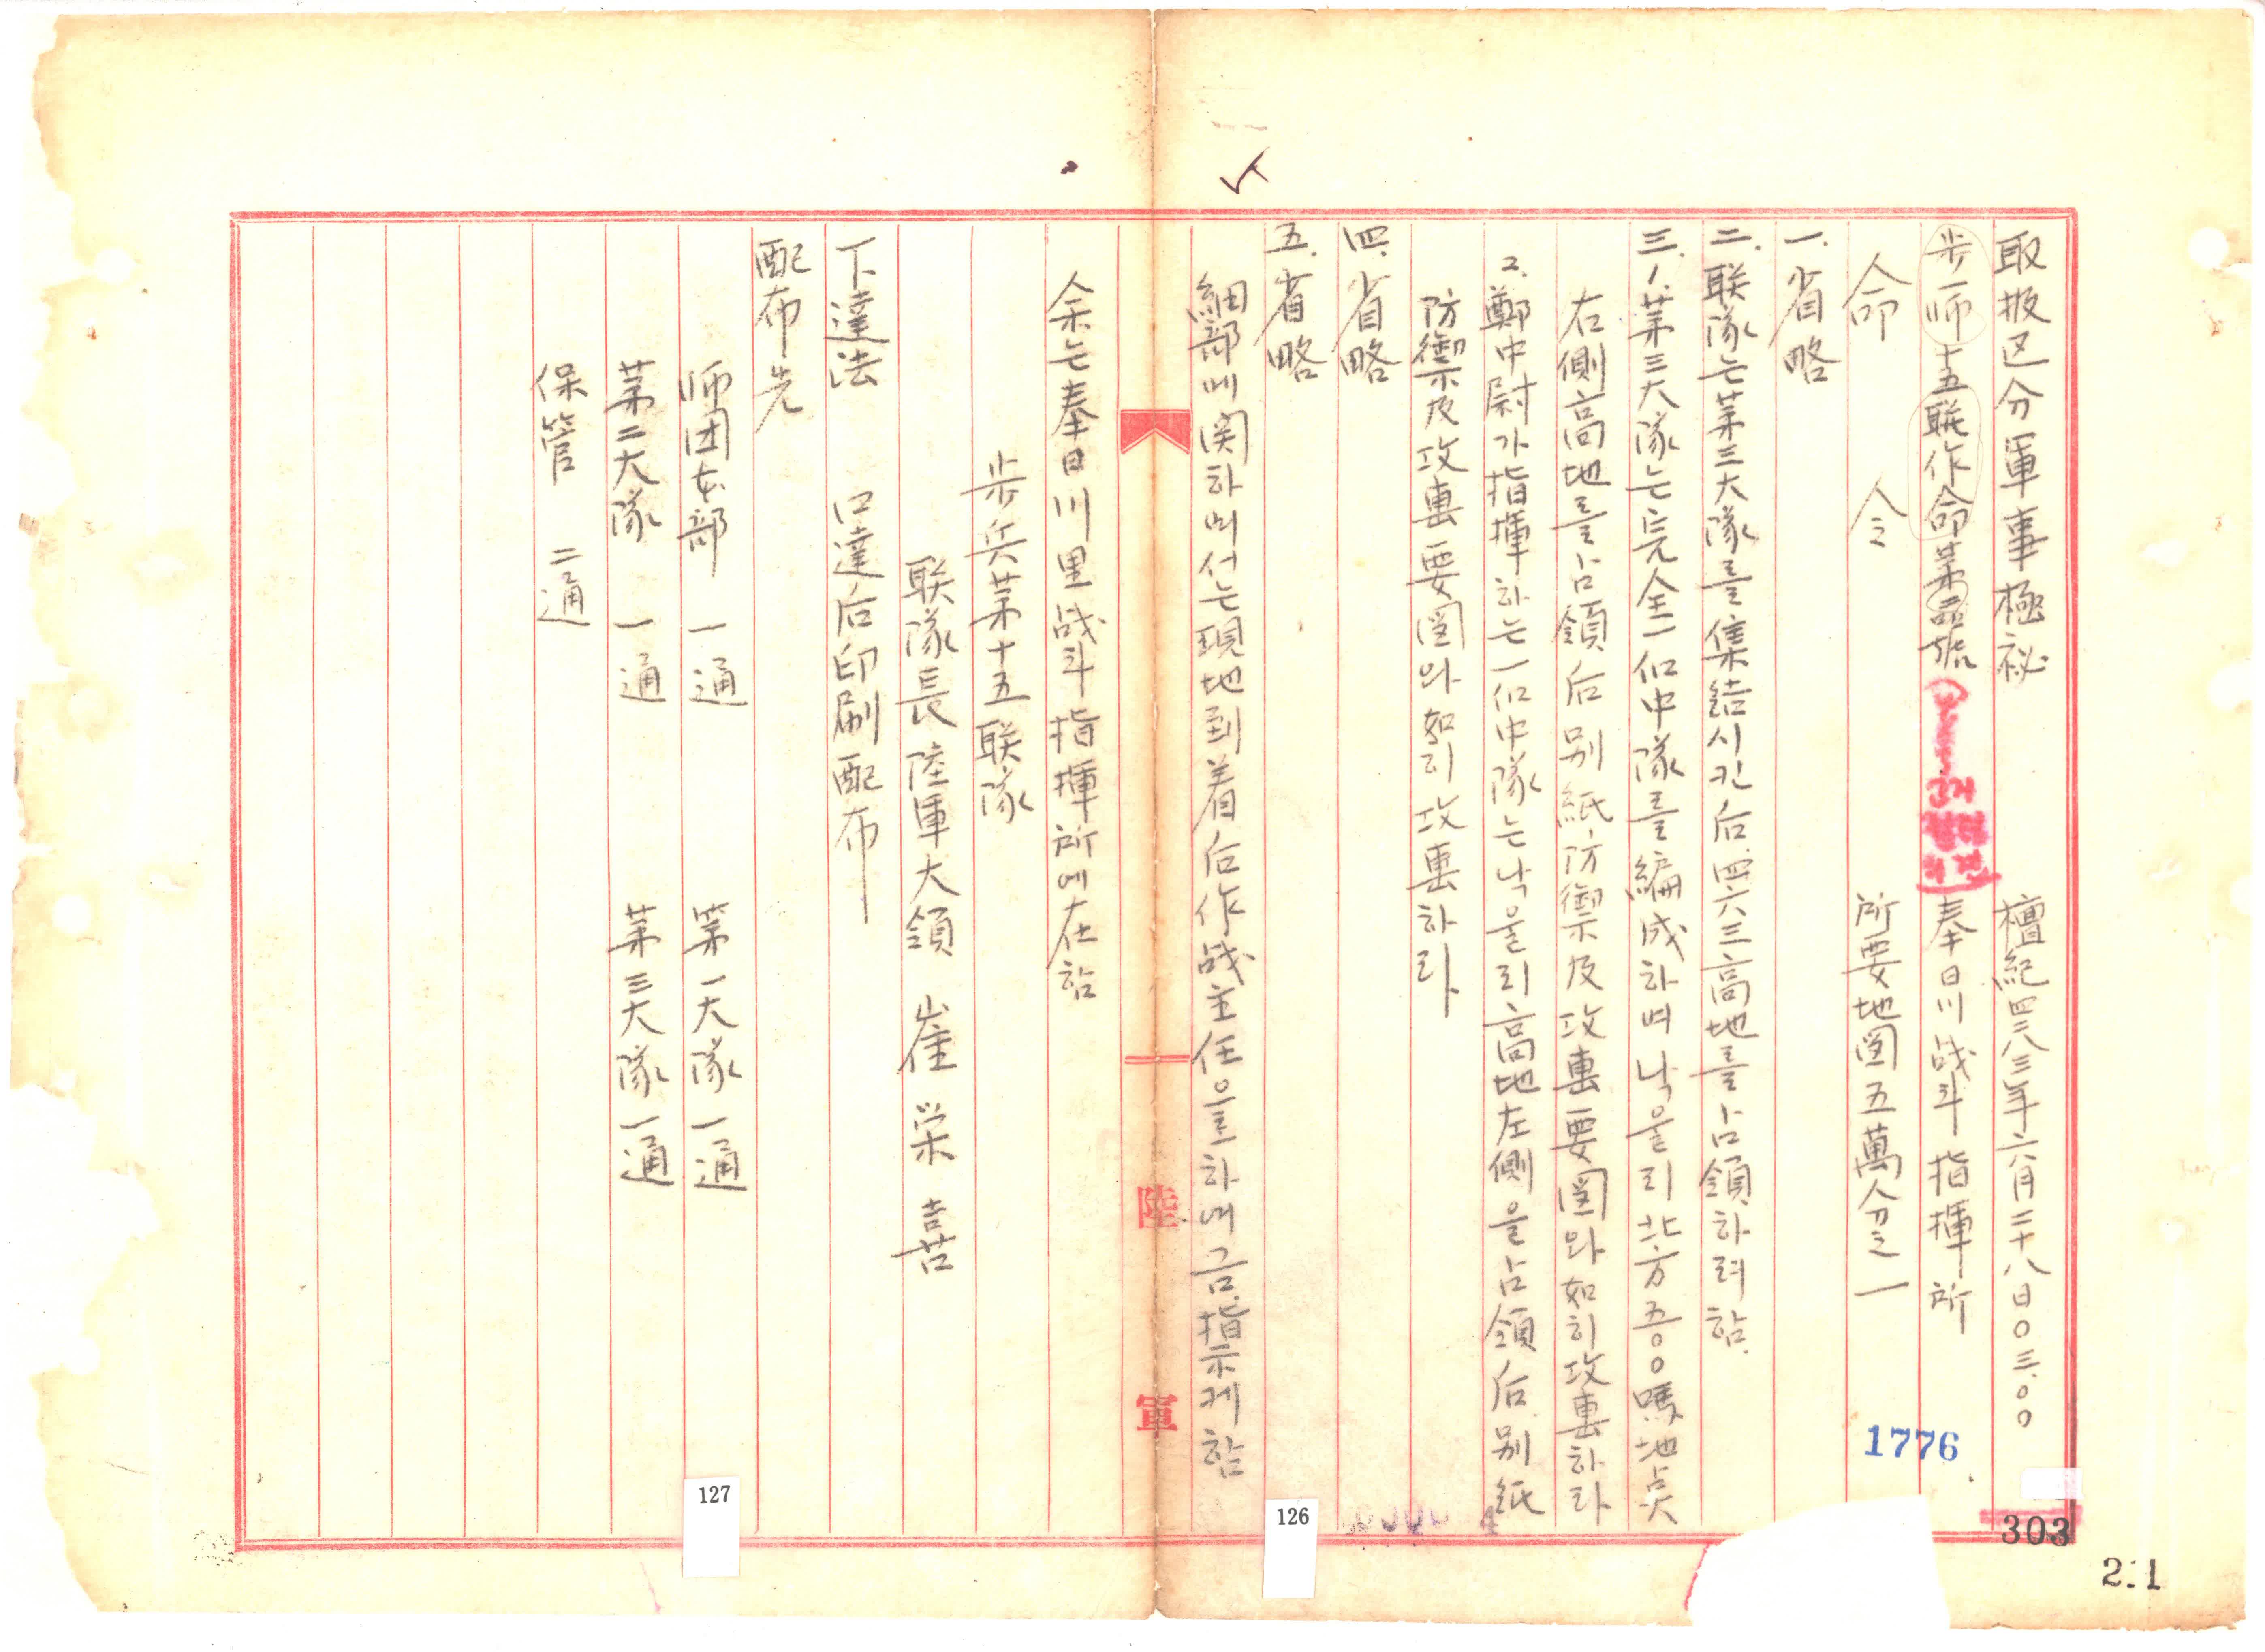 取扱区分 軍事極祕 檀紀四二八三年六月二十八日〇三.〇〇
步一师十五联作命第 號 奉日川战斗指揮所
命 令 所要地図五萬分之一
一. 省略
二. 联隊는第三大隊를集結시킨后.四六三高地를占領하려함.
三. 1. 第三大隊는完全一個中隊를編成하며낙을리北方五〇〇碼地点
右側高地를占領后別紙防禦及攻擊要図와如히攻擊하라
2. 鄭中尉가指揮하는一個中隊는낙을리高地左側을占領后.別紙
防禦及攻擊要図와如히攻擊하라
四. 省略
五. 省略
細部에関하여서는現地到着后作战主任을하여금.指示케함
余는奉日川里战斗指揮所에在함
步兵第十五联隊
联隊長陸軍大領 崔栄喜
下達法 口達后印刷配布
配布先
师団本部 一通 第一大隊一通
第二大隊 一通 第三大隊一通
保管 二通
陸軍
1776
303
2:1
126
127